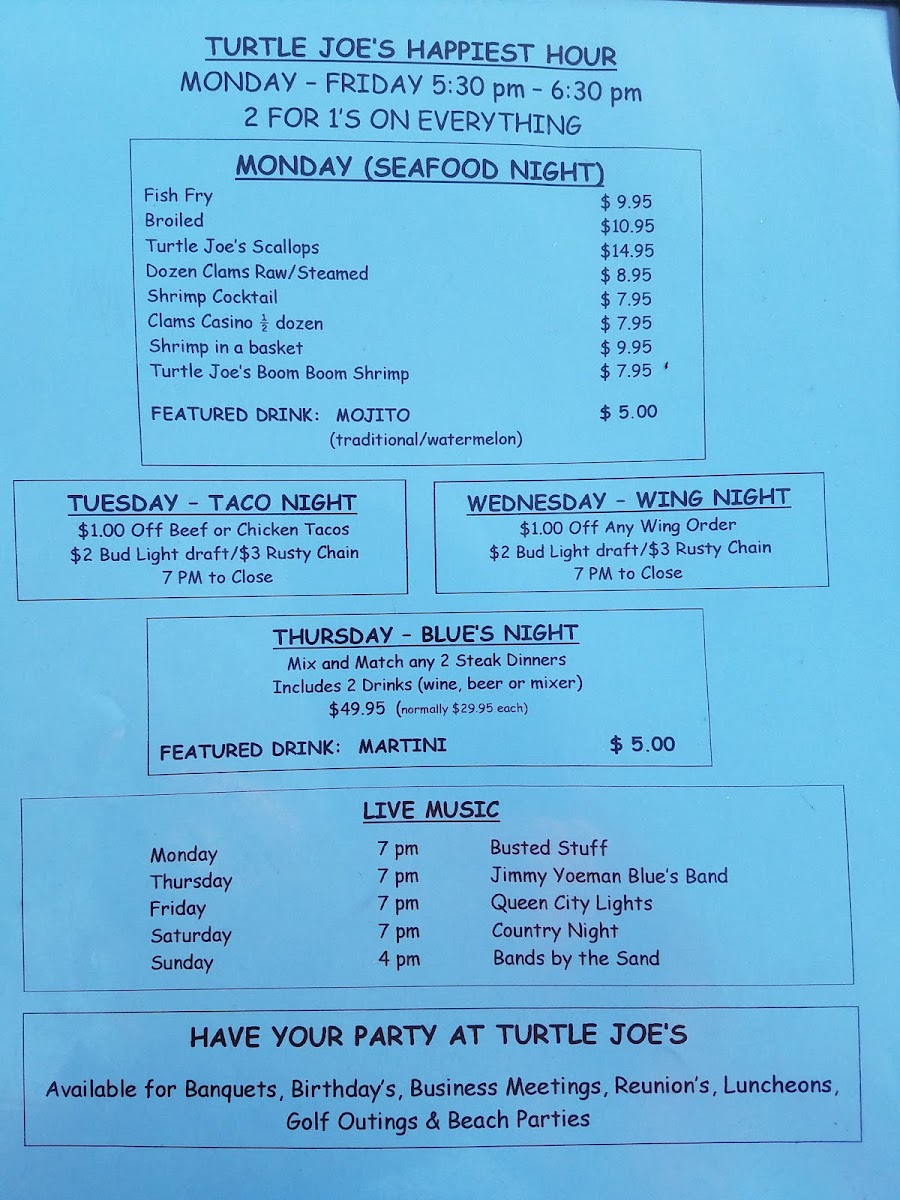 TURTLE JOE'S HAPPIEST HOUR
MONDAY - FRIDAY 5:30 pm - 6:30 pm
2 FOR 1'S ON EVERYTHING
MONDAY (SEAFOOD NIGHT)
Fish Fry $ 9.95
Broiled $10.95
Turtle Joe's Scallops $14.95
Dozen Clams Raw/Steamed $ 8.95
Shrimp Cocktail $ 7.95
Clams Casino ½ dozen $ 7.95
Shrimp in a basket $ 9.95
Turtle Joe's Boom Boom Shrimp $ 7.95
FEATURED DRINK: MOJITO $ 5.00
(traditional/watermelon)
TUESDAY - TACO NIGHT
$1.00 Off Beef or Chicken Tacos
$2 Bud Light draft/$3 Rusty Chain
7 PM to Close
WEDNESDAY - WING NIGHT
$1.00 Off Any Wing Order
$2 Bud Light draft/$3 Rusty Chain
7 PM to Close
THURSDAY - BLUE'S NIGHT
Mix and Match any 2 Steak Dinners
Includes 2 Drinks (wine, beer or mixer)
$49.95 (normally $29.95 each)
FEATURED DRINK: MARTINI $ 5.00
LIVE MUSIC
Monday 7 pm Busted Stuff
Thursday 7 pm Jimmy Yoeman Blue's Band
Friday 7 pm Queen City Lights
Saturday 7 pm Country Night
Sunday 4 pm Bands by the Sand
HAVE YOUR PARTY AT TURTLE JOE'S
Available for Banquets, Birthday's, Business Meetings, Reunion's, Luncheons,
Golf Outings & Beach Parties